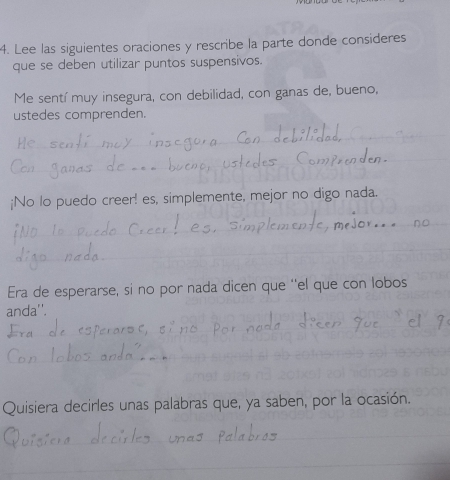 4. Lee las siguientes oraciones y rescribe la parte donde consideres
que se deben utilizar puntos suspensivos.
Me sentí muy insegura, con debilidad, con ganas de, bueno,
ustedes comprenden.
Me sentí muy insegura. Con debilidad,
Con ganas de... bueno, ustedes Comprenden.
¡No lo puedo creer! es, simplemente, mejor no digo nada.
¡No lo puedo Creer! es, simplemente, mejor... no
digo nada.
Era de esperarse, si no por nada dicen que "el que con lobos
anda".
Era de esperarse, si no por nada dicen que "el
Con lobos anda"...
Quisiera decirles unas palabras que, ya saben, por la ocasión.
Quisiera decirles unas palabras